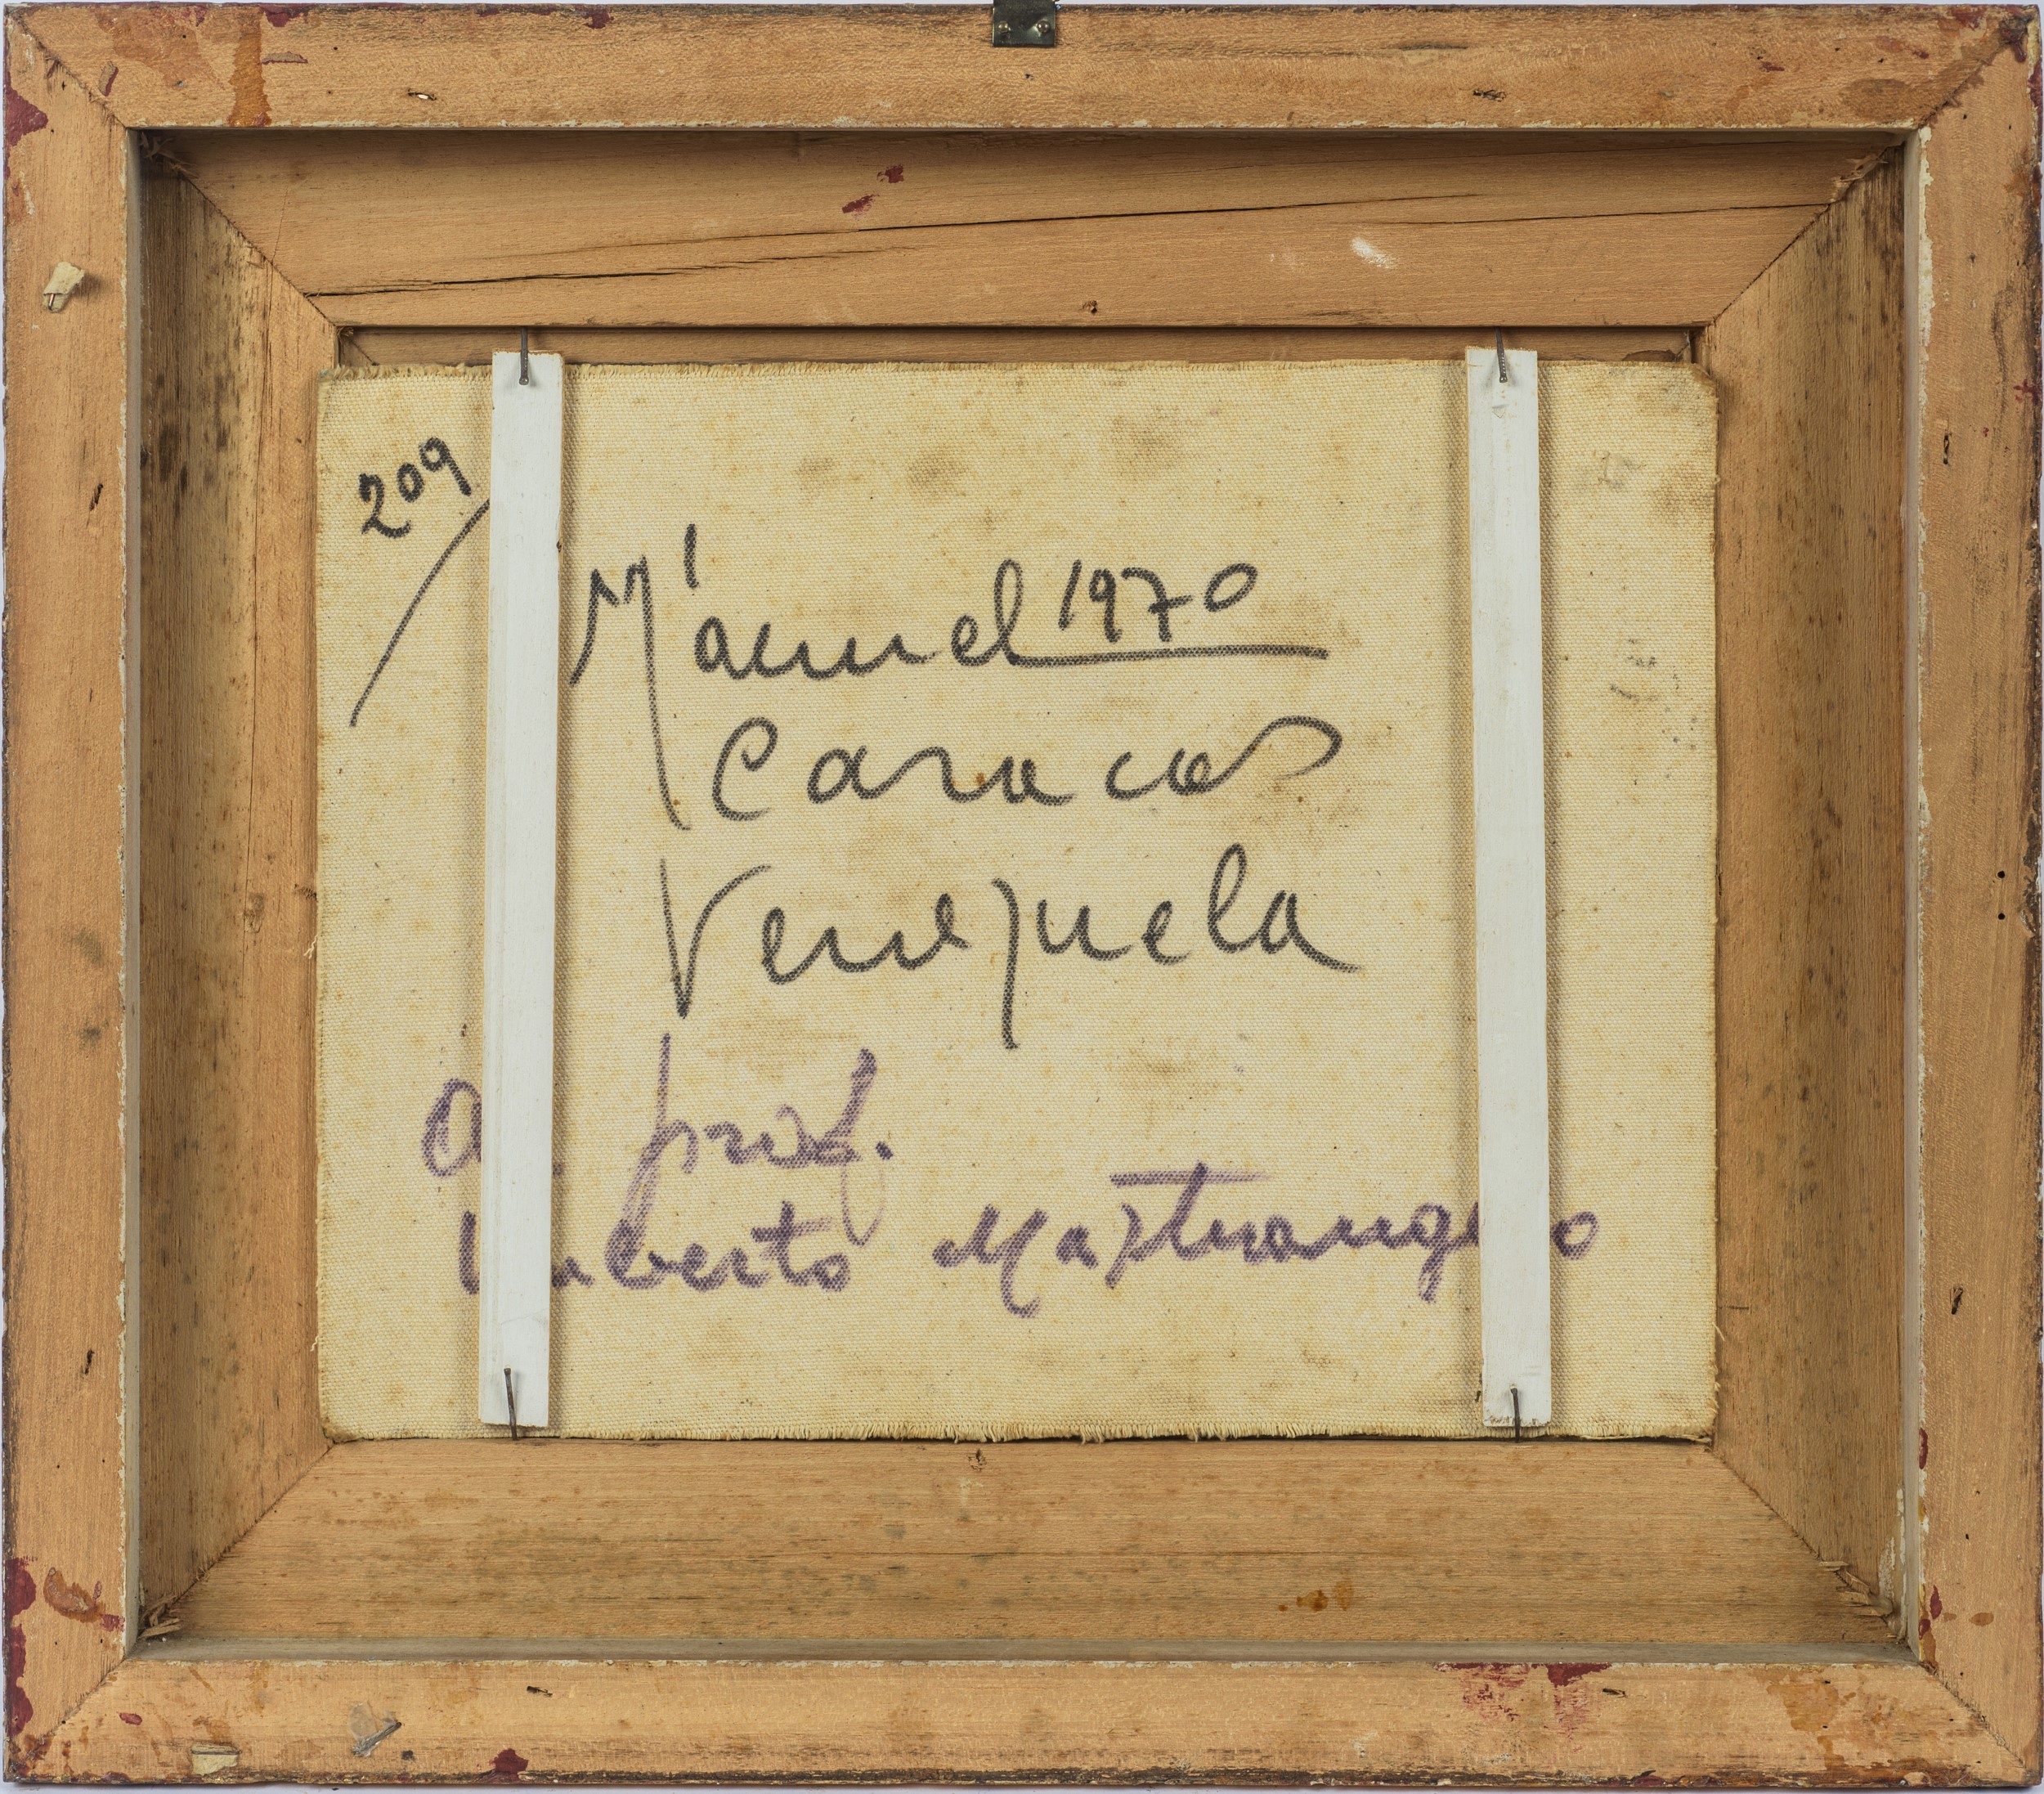 209
M'aunel 1970
Caracas
Venezuela
prof.
Umberto Mastrangelo